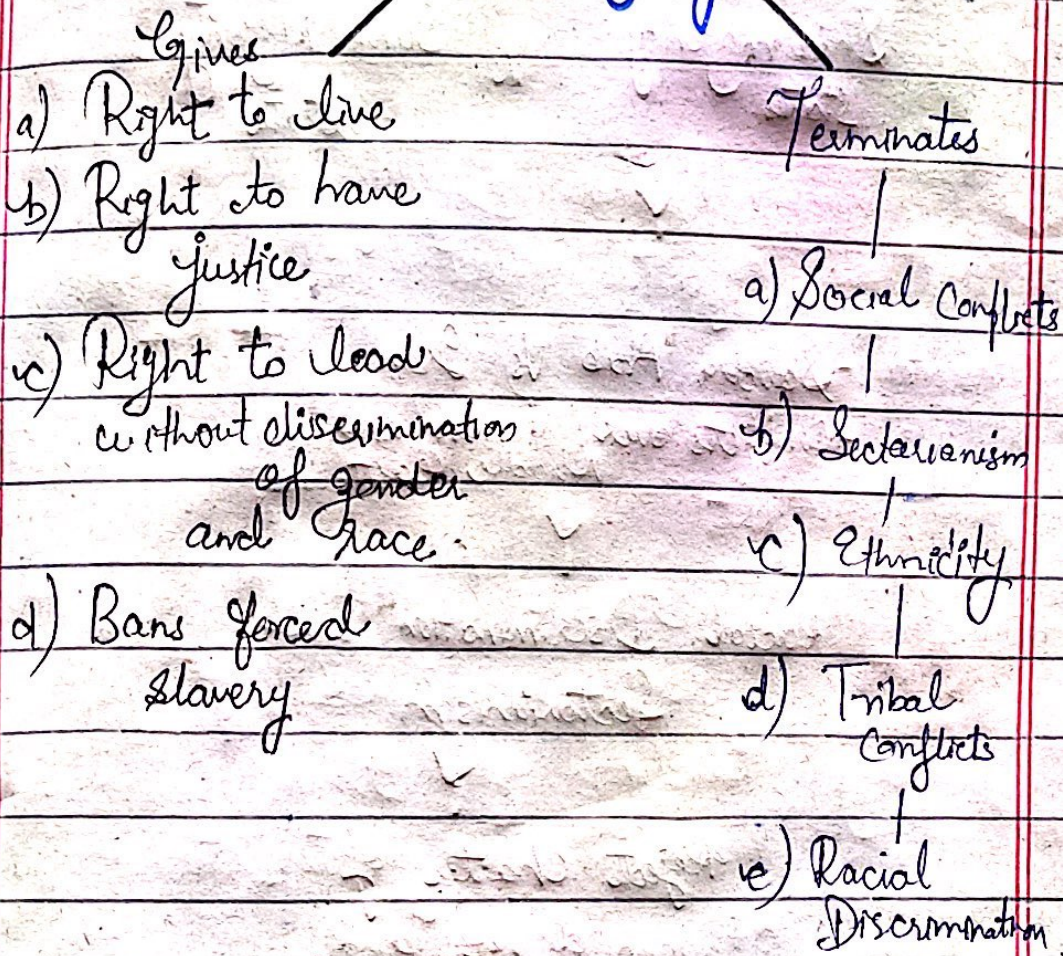 Gives
a) Right to live
b) Right to have
justice
c) Right to lead
without discrimination
of gender
and race.
d) Bans forced
slavery
Terminates
a) Social Conflicts
b) Sectarianism
c) Ethnicity
d) Tribal
Conflicts
e) Racial
Discrimination